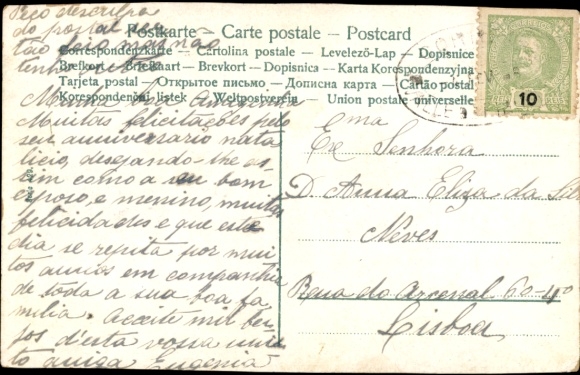 Peço desculpa
do postal ser
tão
tenho
Postkarte - Carte postale - Postcard
Correspondenzkarte - Cartolina postale - Levelező-Lap - Dopisnice
Brefkort - Briefkaart - Brevkort - Dopisnica - Karta Korespondenzyjna
Tarjeta postal - Открытое письмо - Дописна карта - Cartão postal
Korespondenční lístek - Weltpostverein - Union postale universelle
10
Muitas felicitações pelo
seu anniversario nata
licio, desejando-lhe as
sim como a seu bom
esposo, e menino, muitas
felicidades e que este
dia se repita por mui
tos annos em companhia
de toda a sua boa fa
milia. Aceite mil bei
jos d'esta vossa mui
to amiga Eugenia
Ema
Exe Senhora
D. Anna Eliza da Silva
Neves
Rua do Arsenal 60-4º
Lisboa